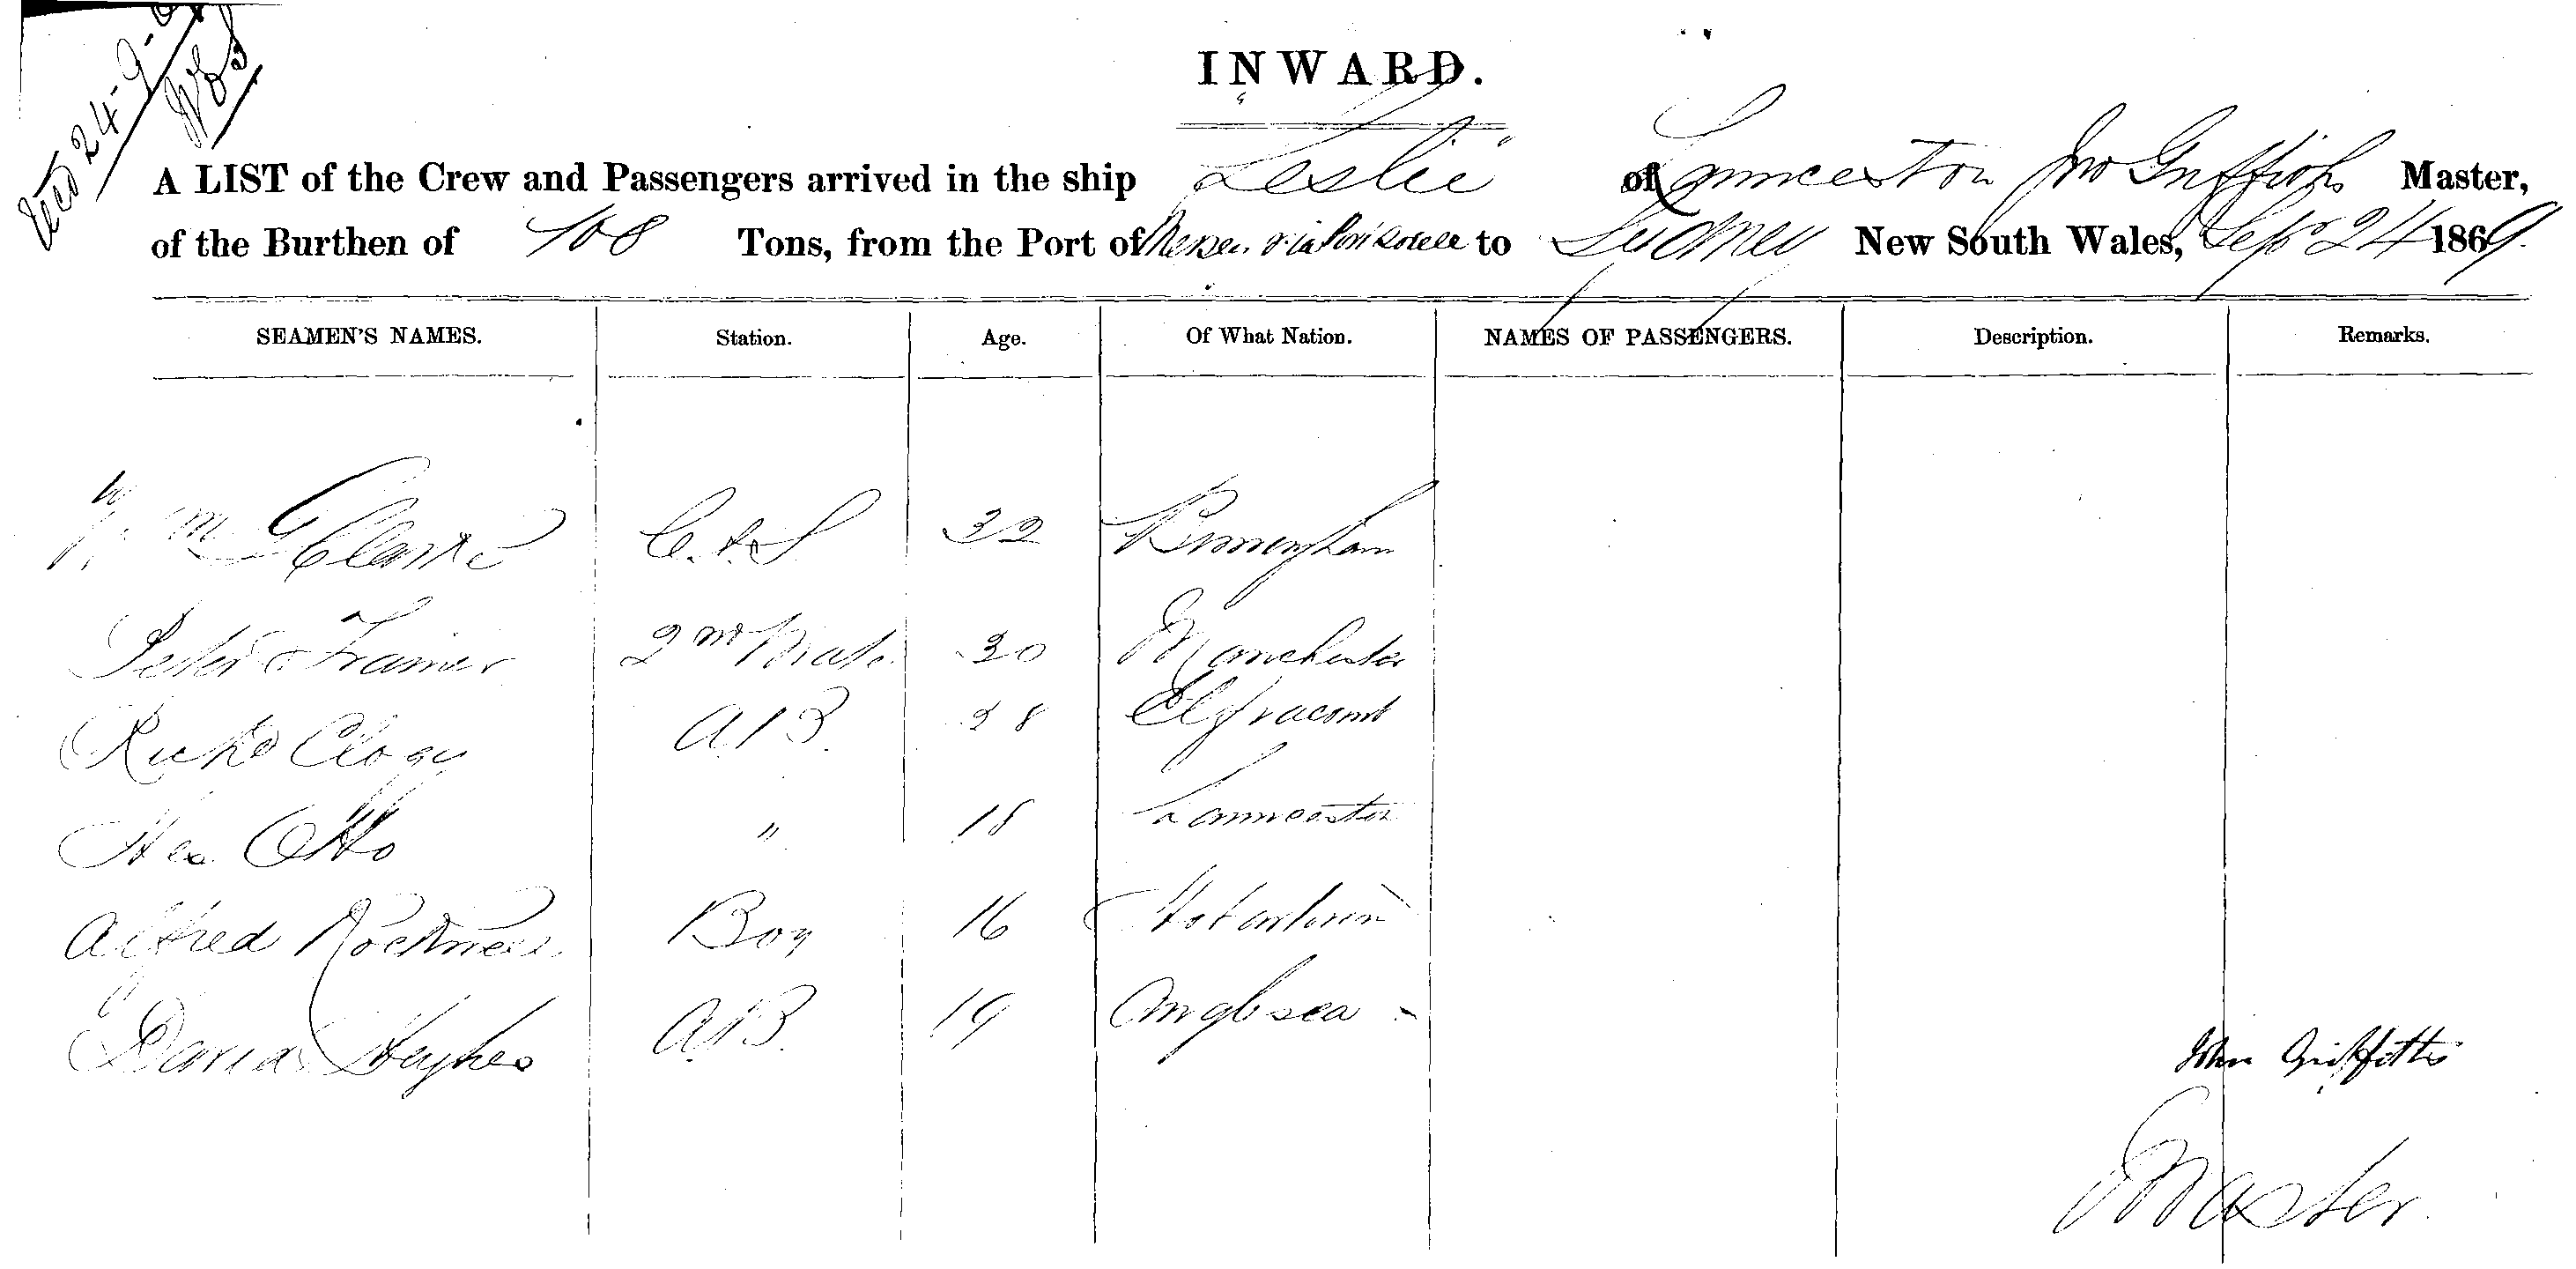 Recd 24-9-
INWARD.
A LIST of the Crew and Passengers arrived in the ship Leslie of Launceston Jno Griffiths Master,
of the Burthen of 108 Tons, from the Port of Mersey via Port Sorell to Sydney New South Wales, Sept 24 1869.
SEAMEN'S NAMES. Station. Age. Of What Nation. NAMES OF PASSENGERS. Description. Remarks.
Wm Clarke C. & S 32 Birmingham
Peter Framer 2nd Mate 30 Manchester
Richd Clogy AB 28 Elfracomb
Alex Otto " 18 Launceston
Alfred Boy 16 Hobartown
David Hughes AB 19 Anglesea
John Griffiths
Master